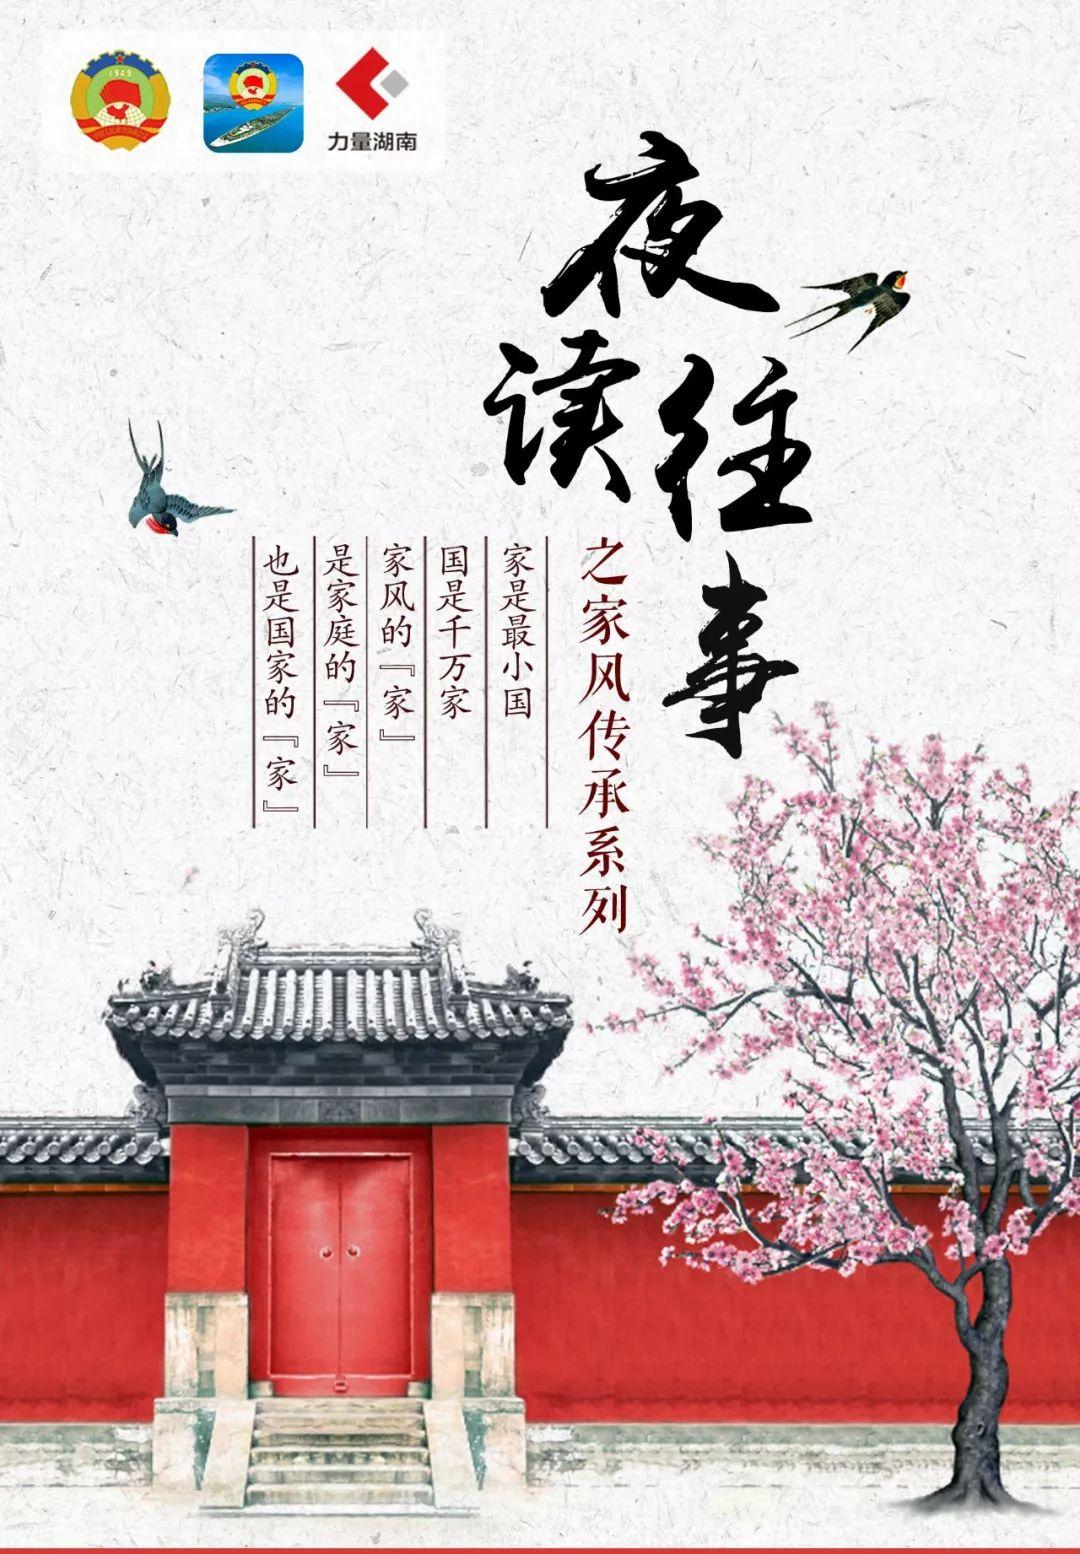 1949
力量湖南
夜读往事
之家风传承系列
家是最小国
国是千万家
家风的『家』
是家庭的『家』
也是国家的『家』